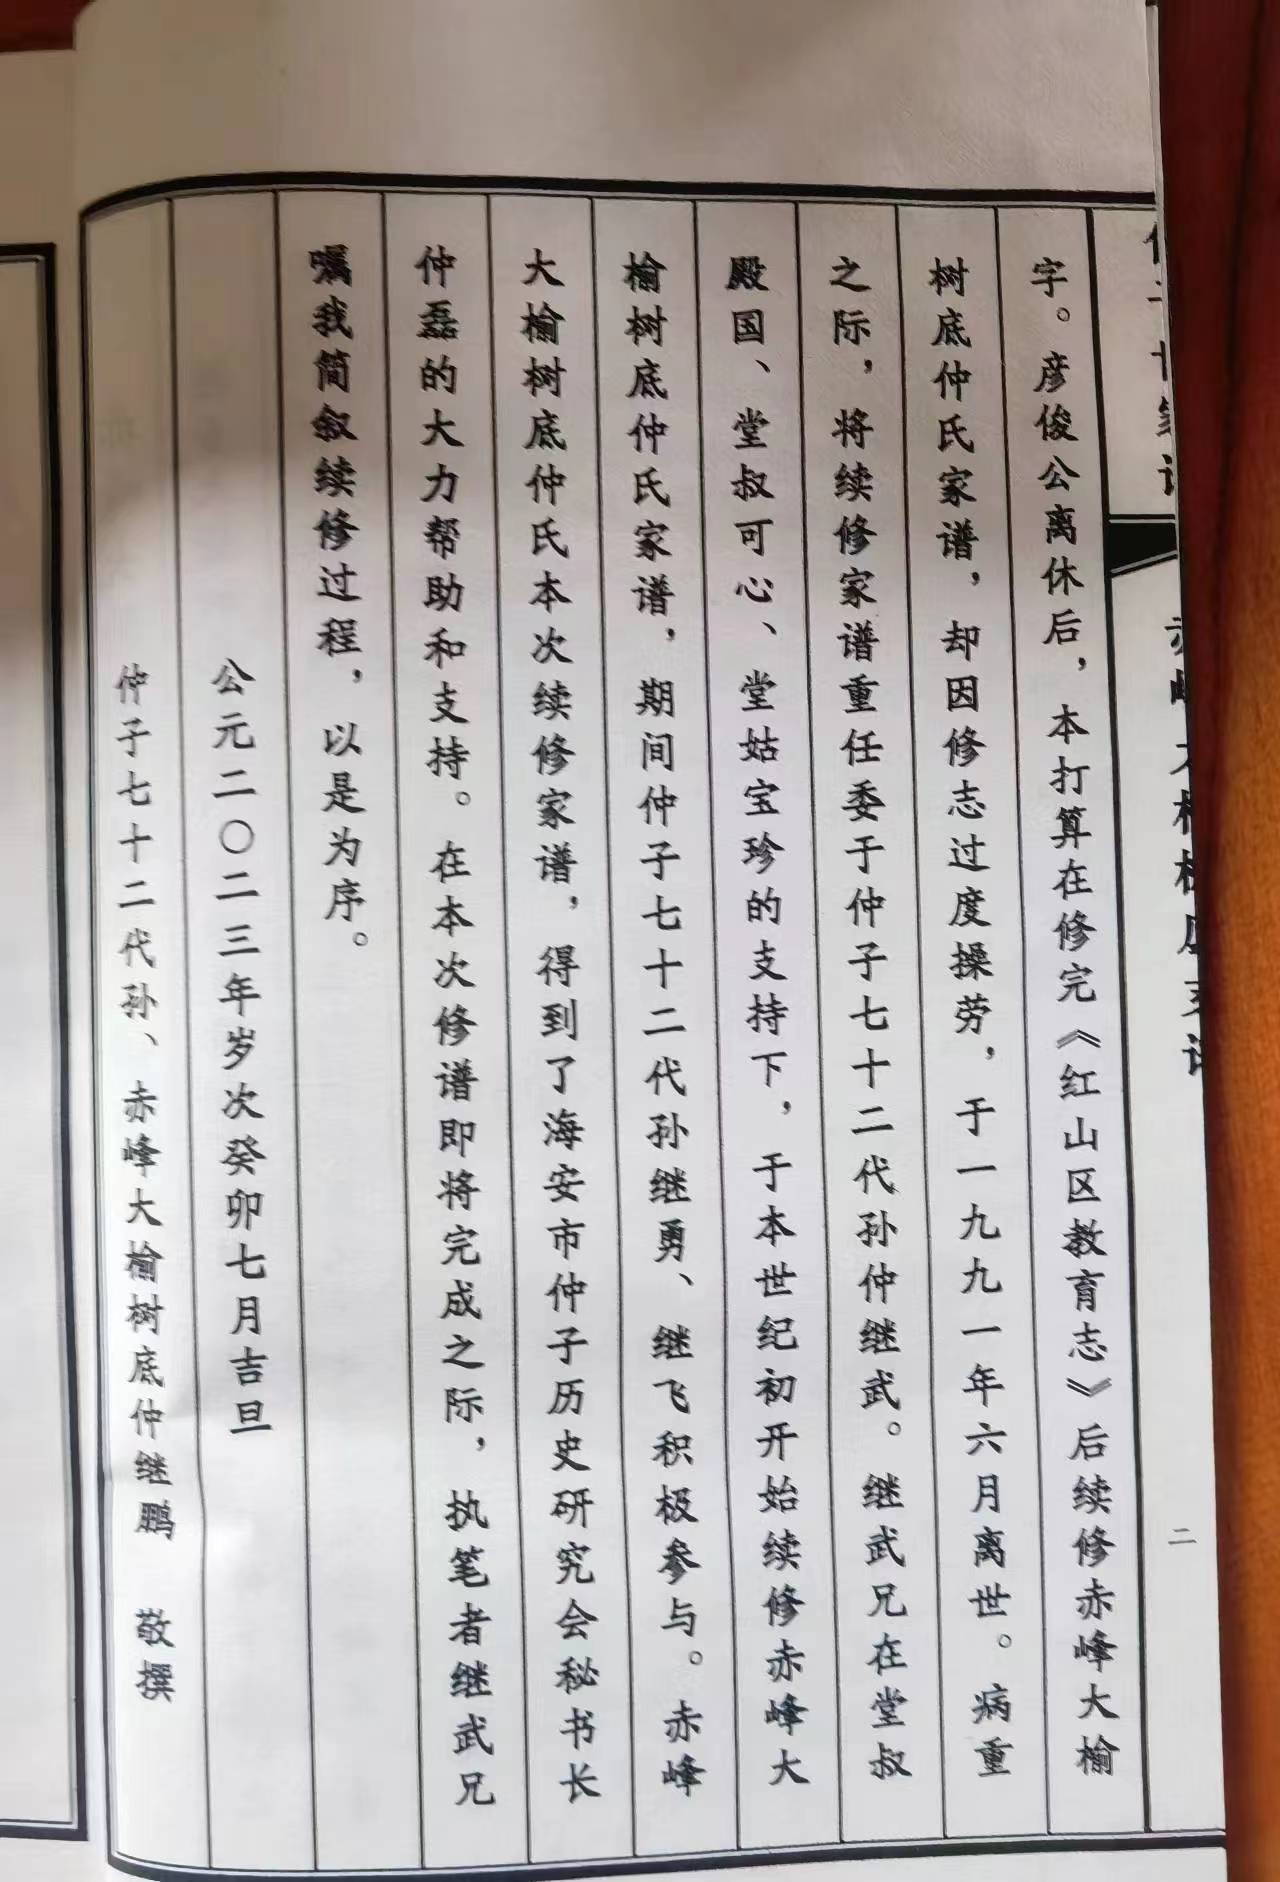 字。彦俊公离休后，本打算在修完《红山区教育志》后续修赤峰大榆
树底仲氏家谱，却因修志过度操劳，于一九九一年六月离世。病重
之际，将续修家谱重任委于仲子七十二代孙仲继武。继武兄在堂叔
殿国、堂叔可心、堂姑宝珍的支持下，于本世纪初开始续修赤峰大
榆树底仲氏家谱，期间仲子七十二代孙继勇、继飞积极参与。赤峰
大榆树底仲氏本次续修家谱，得到了海安市仲子历史研究会秘书长
仲磊的大力帮助和支持。在本次修谱即将完成之际，执笔者继武兄
嘱我简叙续修过程，以是为序。
公元二〇二三年岁次癸卯七月吉旦
仲子七十二代孙、赤峰大榆树底仲继鹏 敬撰
二